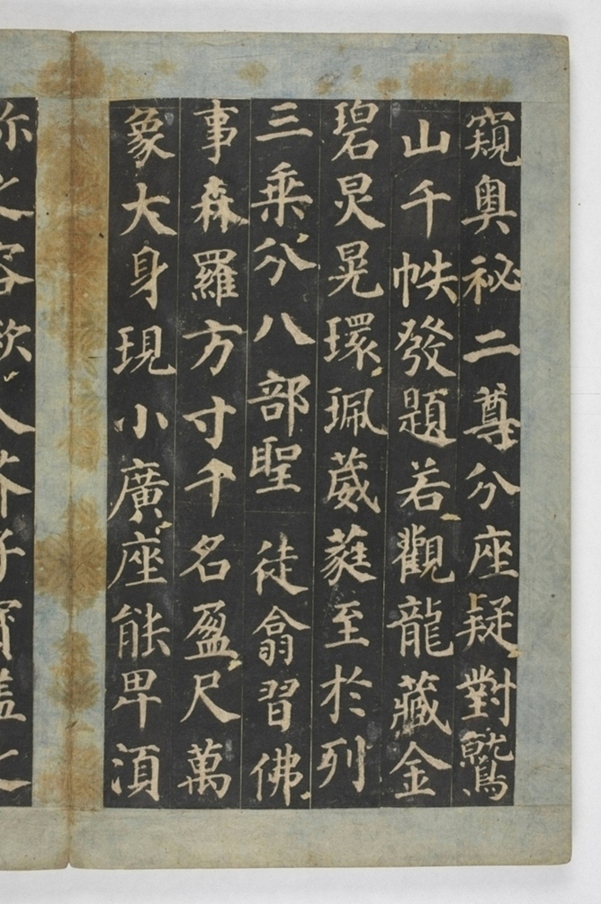 窺奧祕二尊分座疑對鷲
山千帙發題若觀龍藏金
碧炅晃環珮葳蕤至於列
三乘分八部聖徒翕習佛
事森羅方寸千名盈尺萬
象大身現小廣座能卑須
弥之容欻入芥子寶蓋之